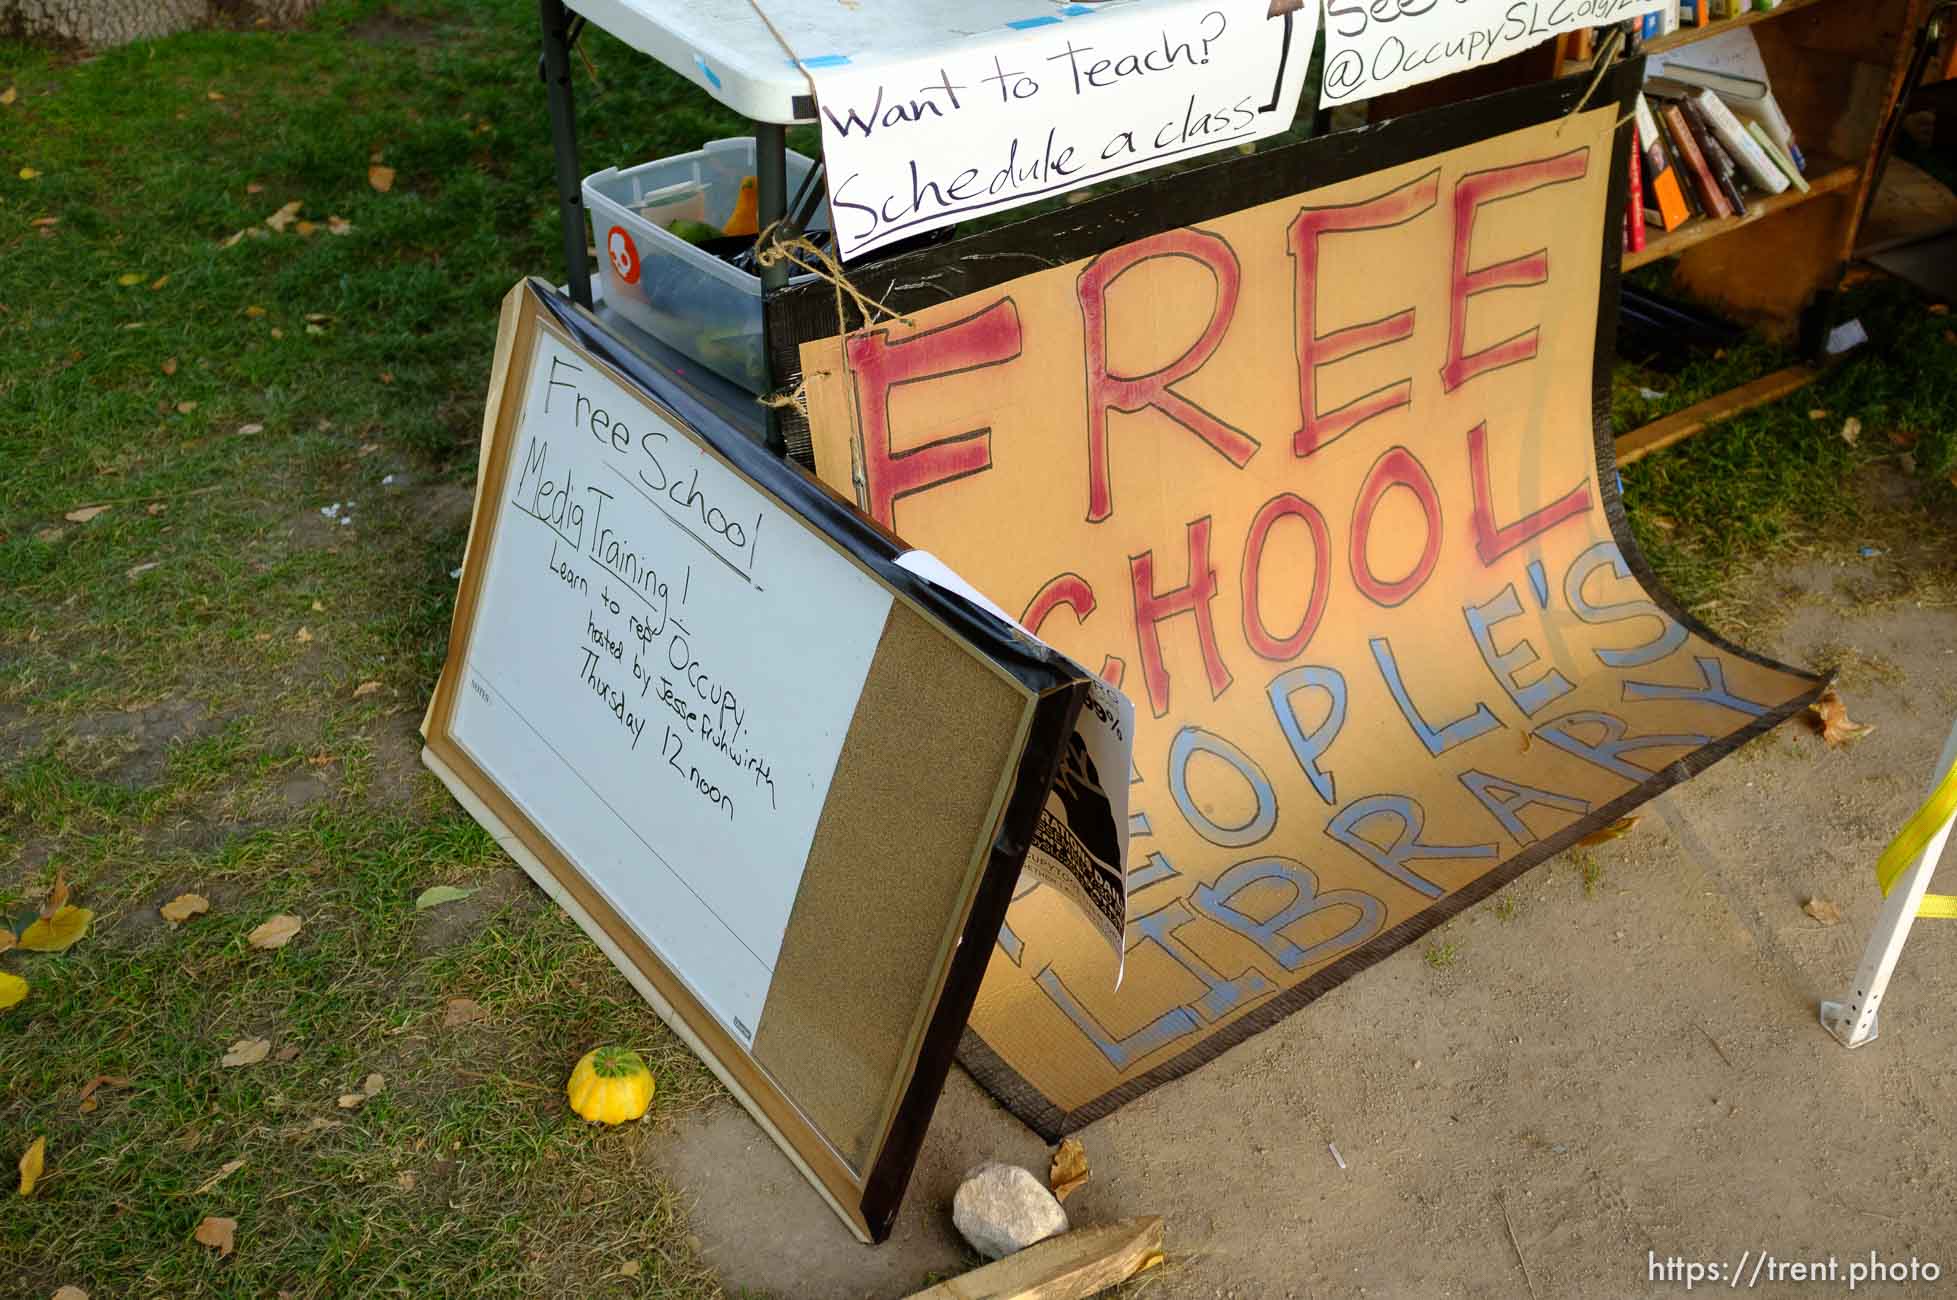 Want to Teach?
Schedule a class
See
@OccupySLC.org/
FREE
SCHOOL
PEOPLE'S
LIBRARY
Free School
Media Training!
Learn to rep Occupy.
hosted by Jesse Fruhwirth
Thursday 12 noon
NOTES:
99%
https://trent.photo